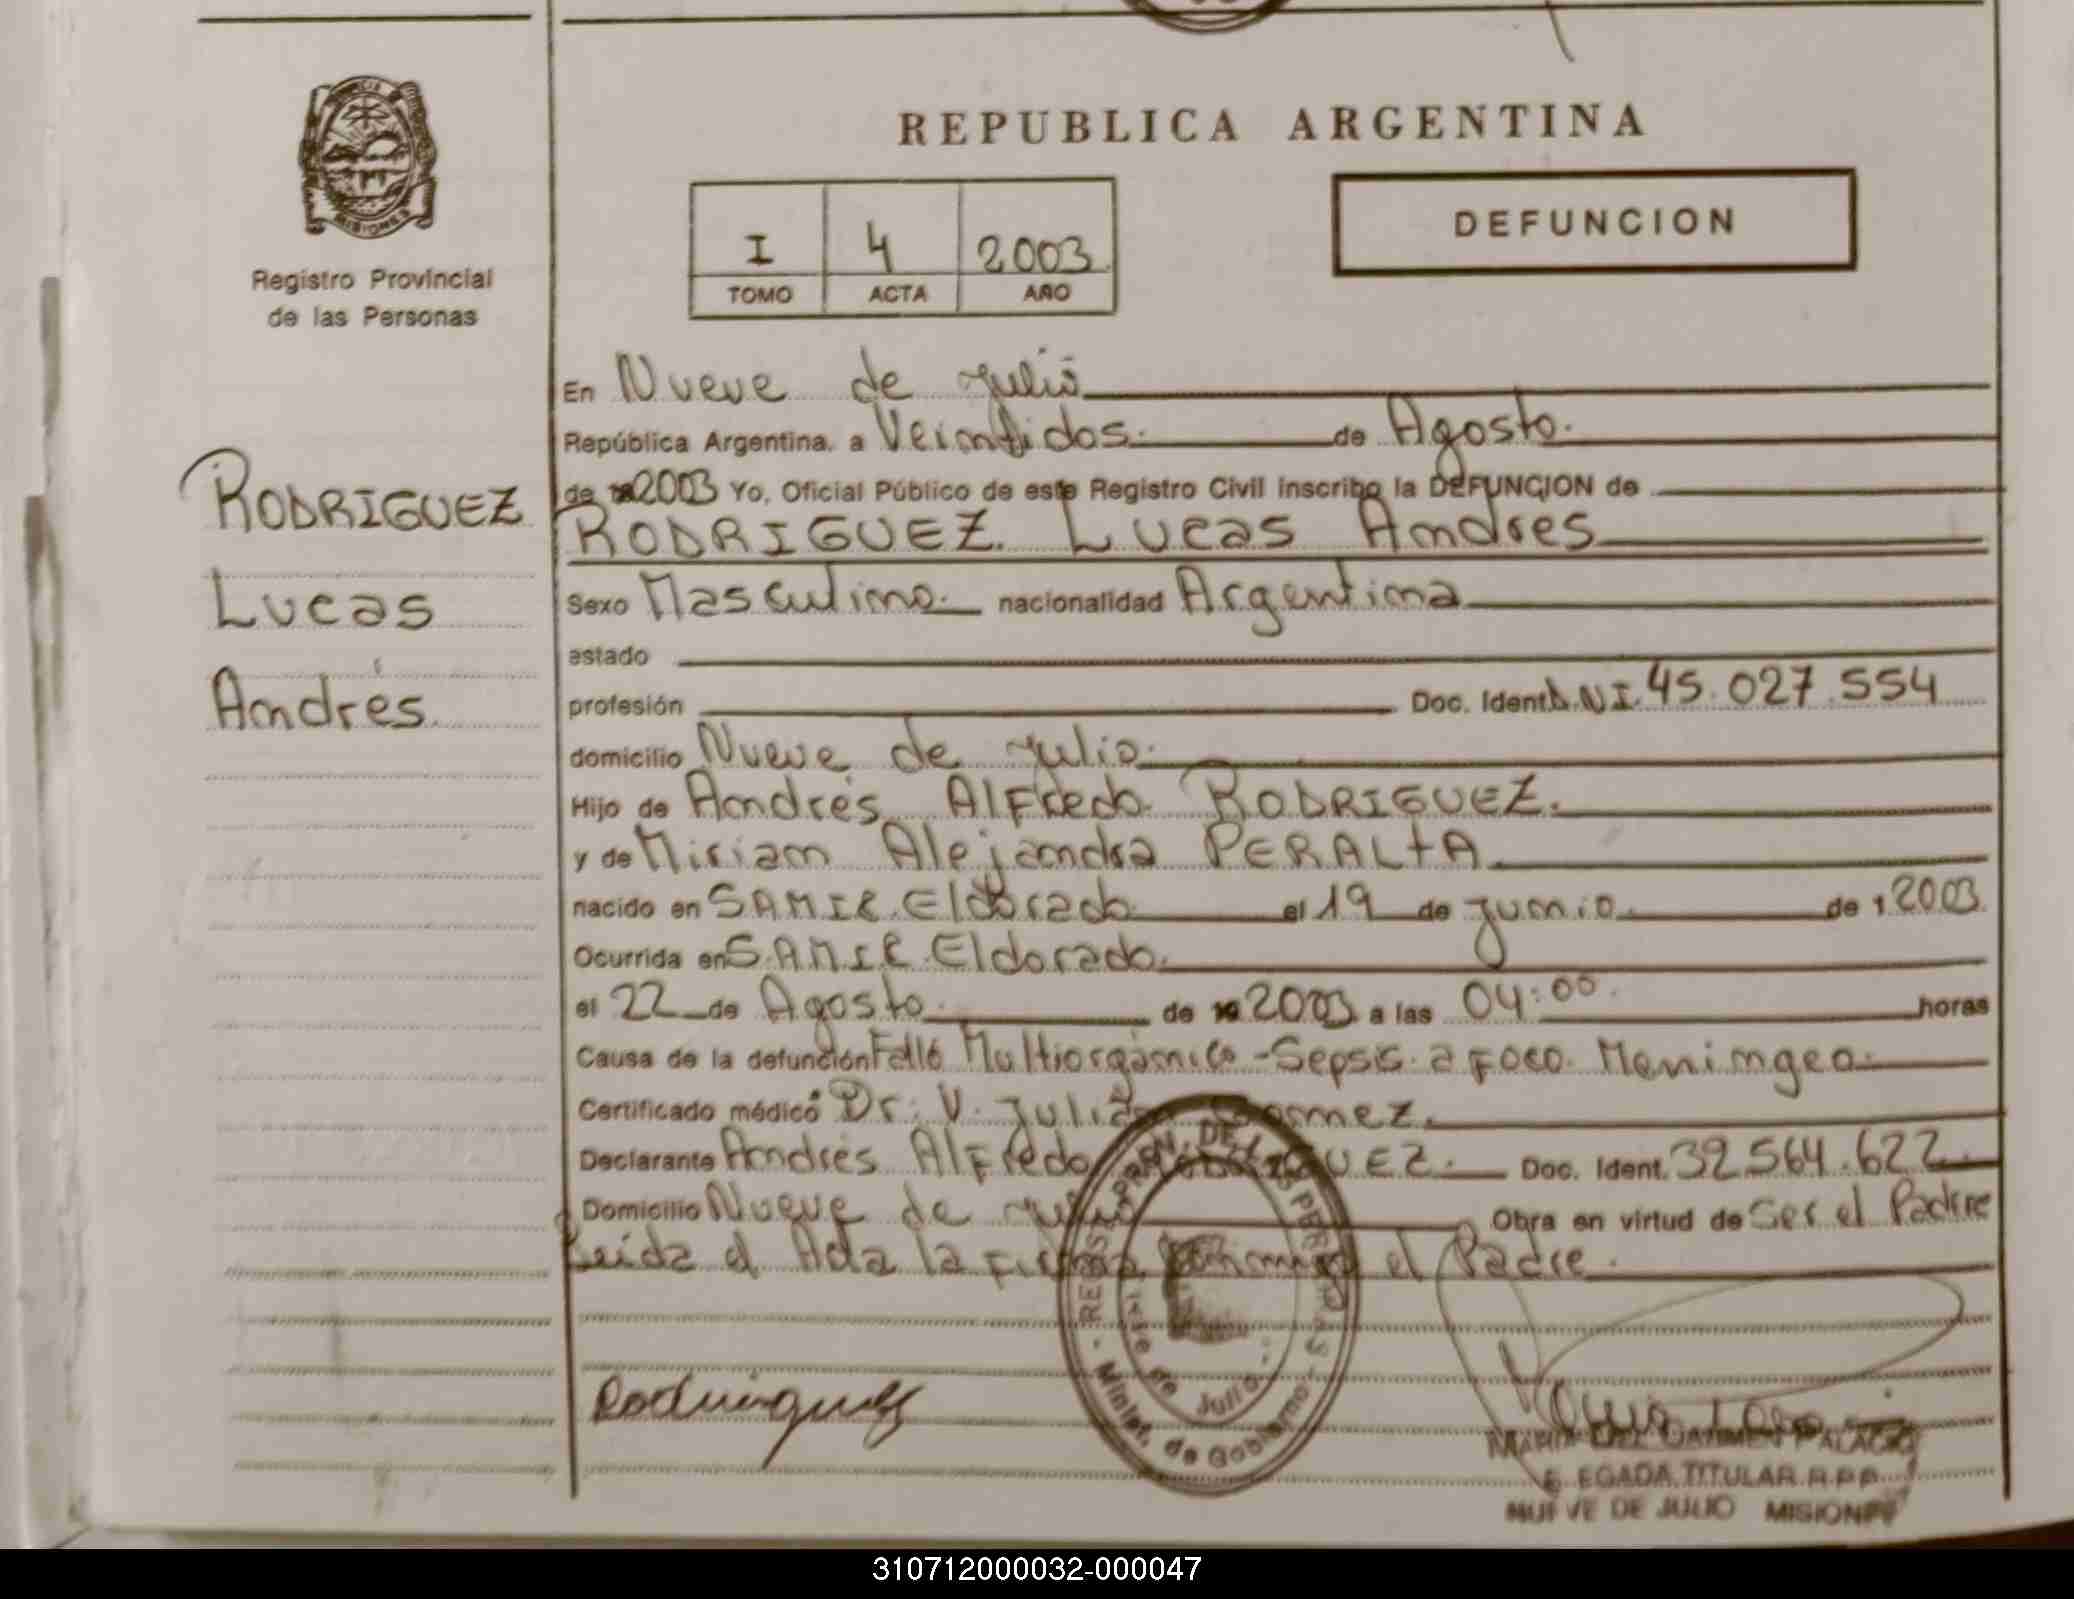 REPUBLICA ARGENTINA
DEFUNCION
I 4 2003
TOMO ACTA AÑO
MISIONES
Registro Provincial
de las Personas
RODRIGUEZ
Lucas
Andrés
En Nueve de julio
República Argentina, a Veintidos de Agosto
de 2003 Yo, Oficial Público de este Registro Civil inscribo la DEFUNCION de
RODRIGUEZ Lucas Andres
Sexo Masculino nacionalidad Argentina
estado
profesión Doc. Ident. D.N.I. 45.027.554
domicilio Nueve de julio
Hijo de Andrés Alfredo RODRIGUEZ
y de Miriam Alejandra PERALTA
nacido en SAMIC Eldorado el 19 de junio de 2003
Ocurrida en S.A.M.I.C Eldorado
el 22 de Agosto de 2003 a las 04:00 horas
Causa de la defunción Fallo Multiorgánico - Sepsis a Foco Meningeo
Certificado médico Dr. V. Julián Gomez
Declarante Andrés Alfredo RODRIGUEZ Doc. Ident. 32.564.622
Domicilio Nueve de julio Obra en virtud de Ser el Padre
Leida el Acta la Firma el Padre
REGIST. PROV. DE LAS PERSONAS
Nueve de Julio
Minist. de Gobierno
Rodriguez
MARIA DEL CARMEN PALACIO
DELEGADA TITULAR R.P.P.
NUEVE DE JULIO MISIONES
310712000032-000047